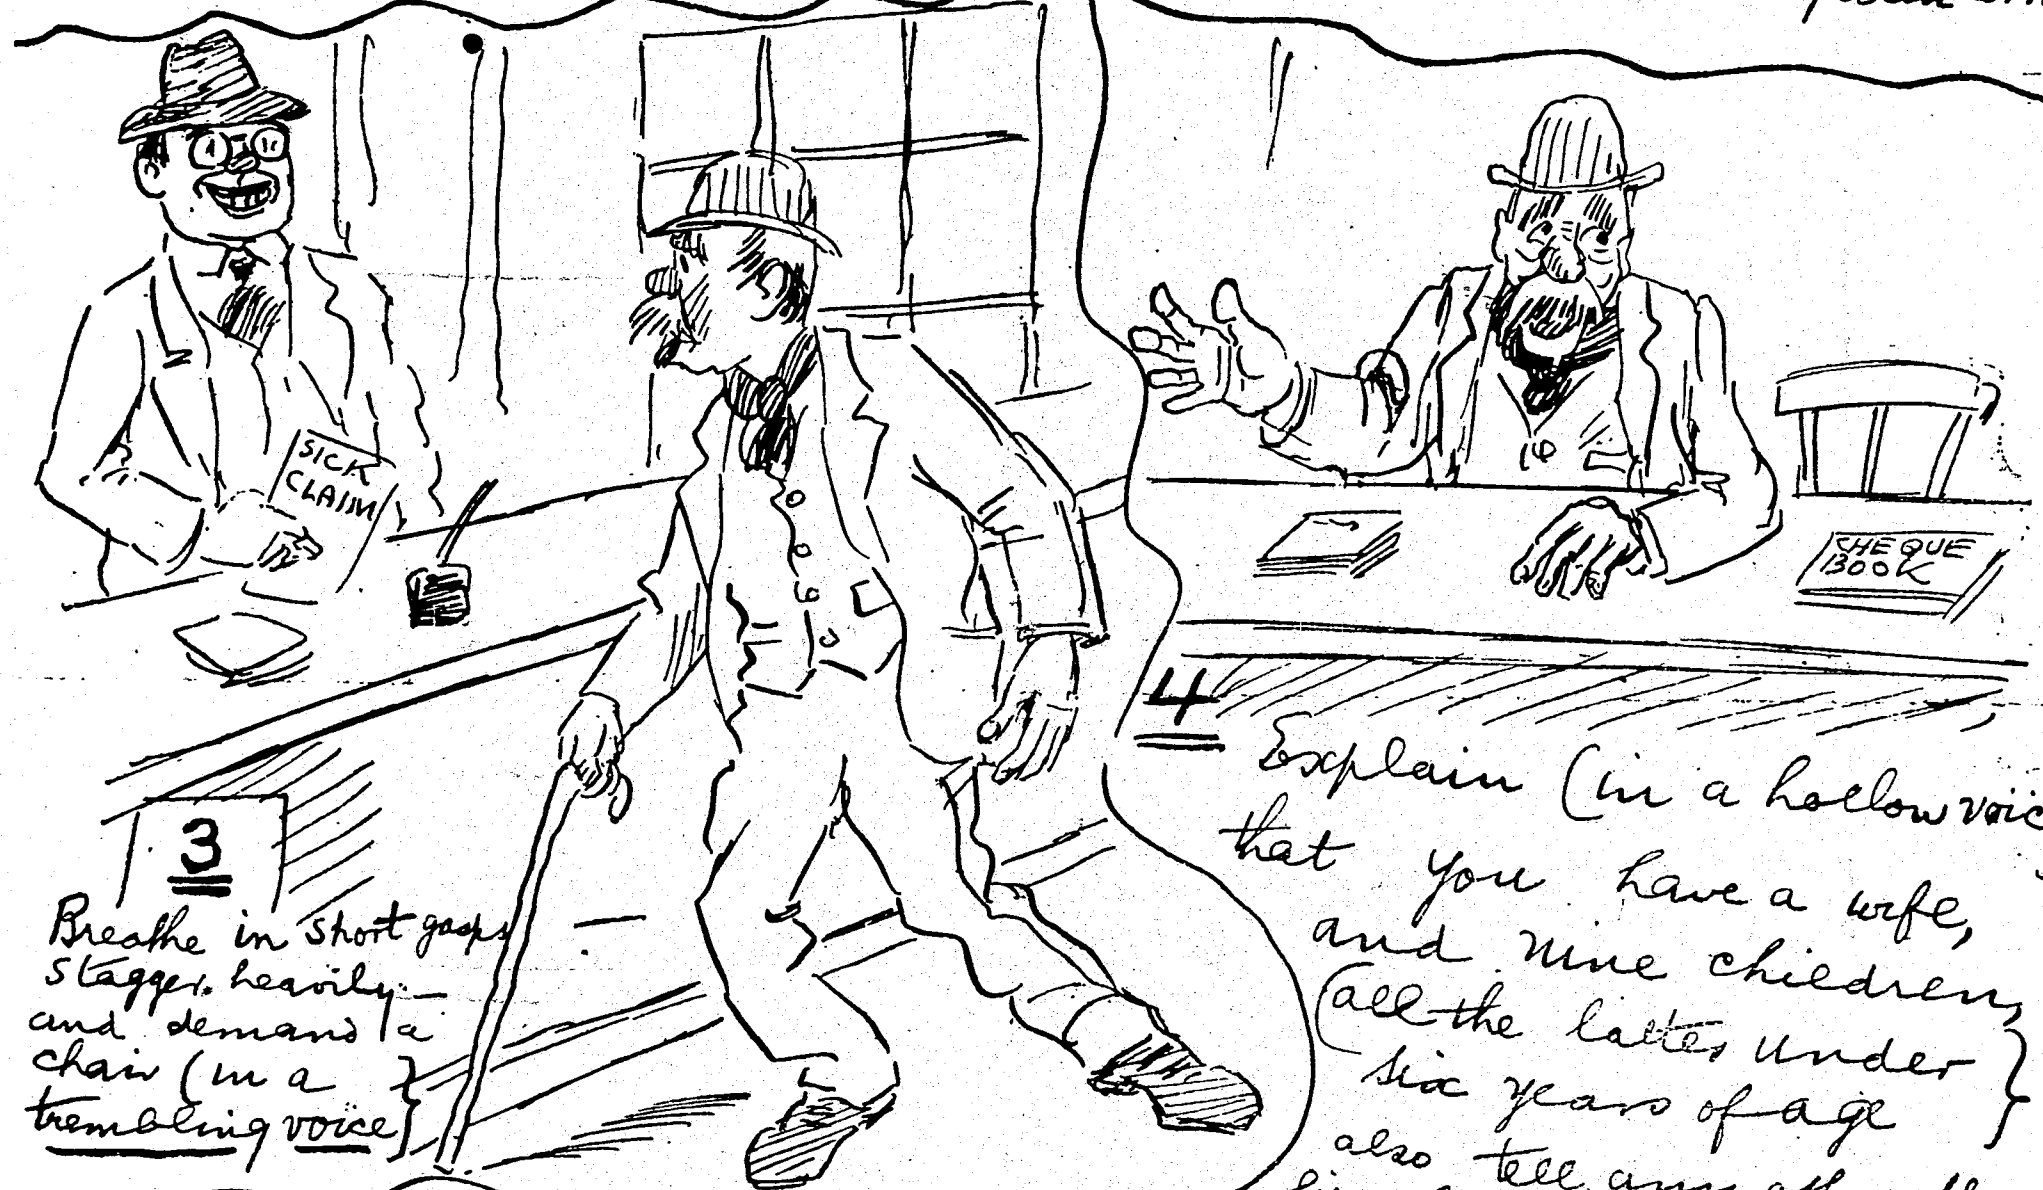 SICK
CLAIM
3
Breathe in short gasps
stagger heavily —
and demand a
chair (in a
trembling voice)
CHEQUE
BOOK
4
Explain (in a hollow
that you have a wife,
and nine children,
(all the latter under
six years of age
also tell any